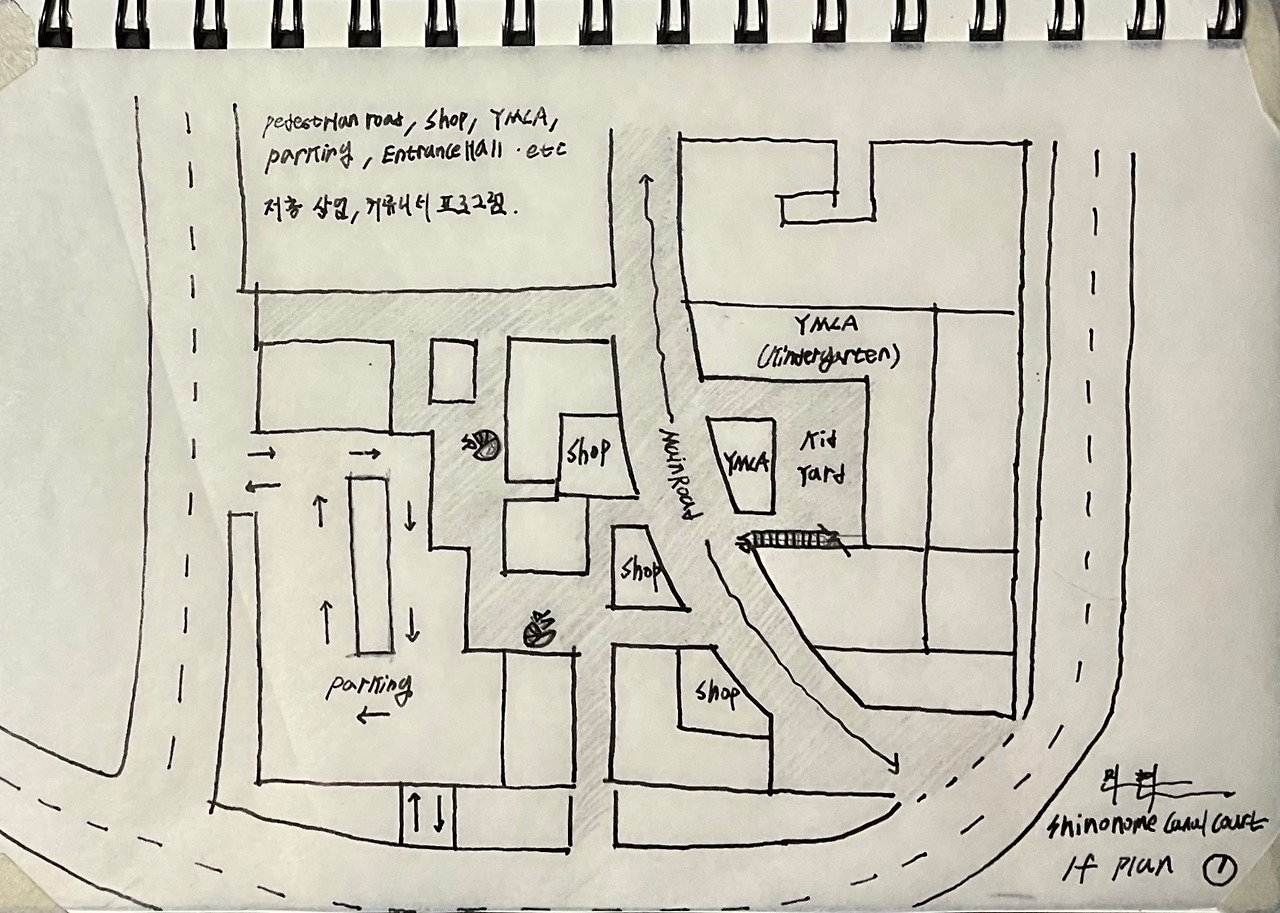 pedestrian road, shop, YMCA,
parking, Entrance Hall . etc
저층 상업, 커뮤니티 프로그램.
YMCA
(Kindergarten)
Shop
Main Road
YMCA
Kid
Yard
Shop
parking
Shop
Shinonome Canal Court
1f plan